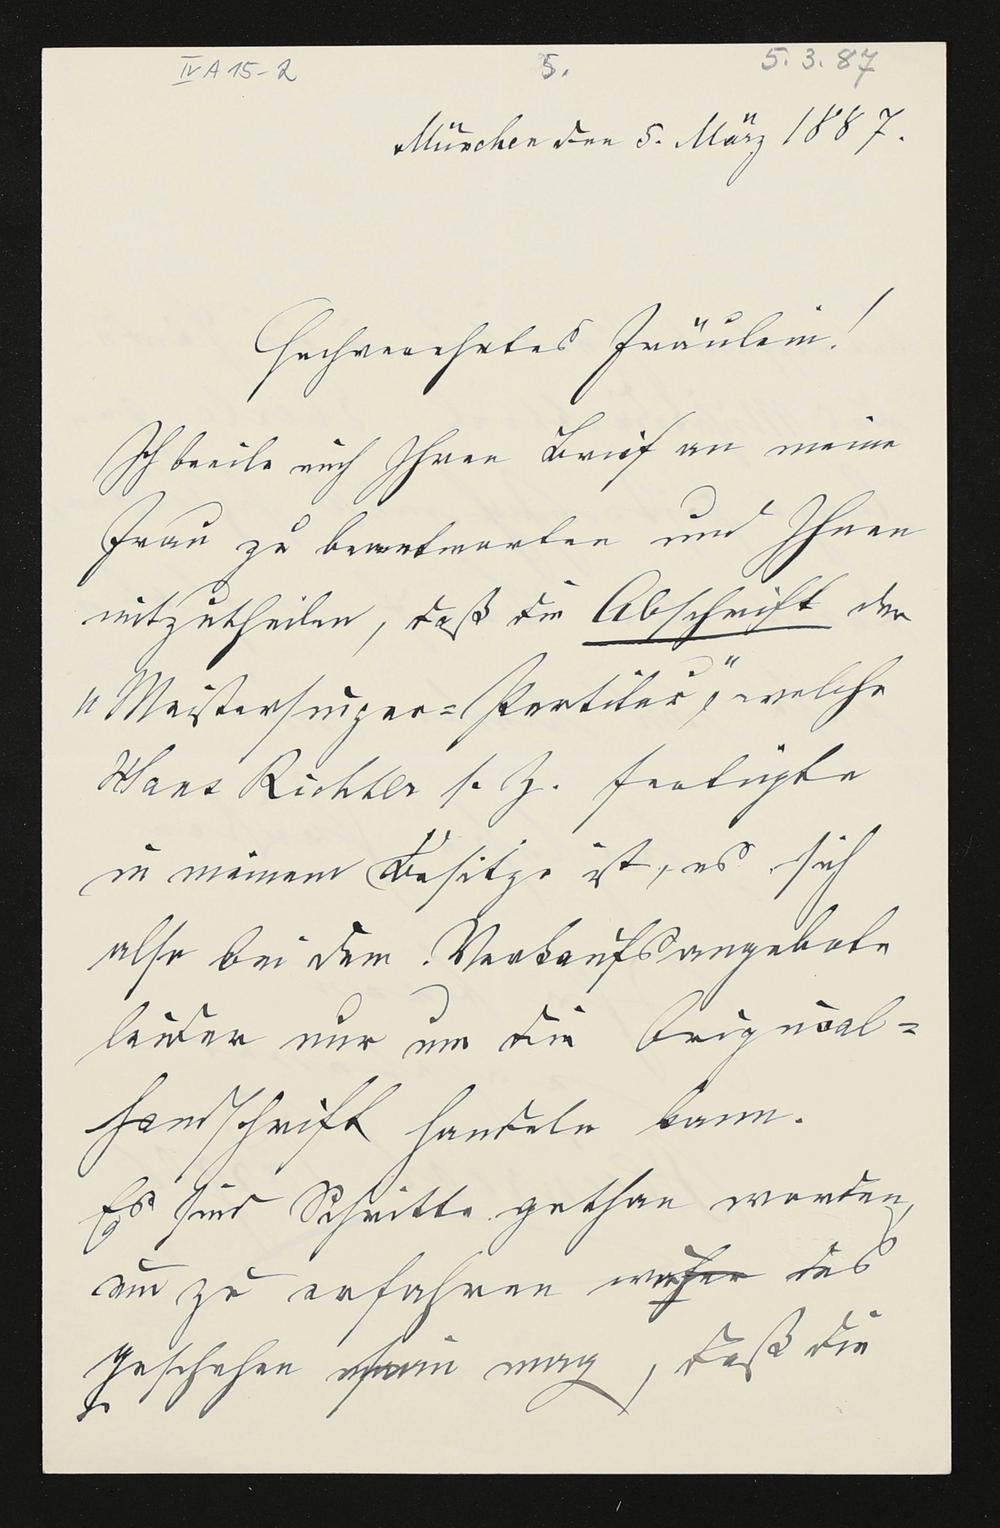 IV A 15-2 5. 5.3.87
München den 5. März 1887.
Hochverehrtes Fräulein!
Ich beeile mich Ihren Brief an meine
Frau zu beantworten und Ihnen
mitzutheilen, daß die Abschrift der
"Meistersinger=Partitur", welche
Hans Richter s. Z. fertigte
in meinem Besitze ist, es sich
also bei dem Verkaufsangebote
leider nur um die Original=
handschrift handeln kann.
Es sind Schritte gethan worden,
um zu erfahren das
geschehen mag, daß die